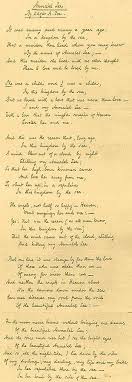 Annabel Lee.
By Edgar A. Poe.
It was many and many a year ago,
In a kingdom by the sea,
That a maiden there lived whom you may know
By the name of Annabel Lee;—
And this maiden she lived with no other thought
Than to love and be loved by me.
She was a child and I was a child,
In this kingdom by the sea,
But we loved with a love that was more than love—
I and my Annabel Lee—
With a love that the winged seraphs of Heaven
Coveted her and me.
And this was the reason that, long ago,
In this kingdom by the sea,
A wind blew out of a cloud
chilling my Annabel Lee;
So that her high-born kinsmen came
And bore her away from me,
To shut her up in a sepulchre
In this kingdom by the sea.
The angels, not half so happy in Heaven,
Went envying her and me;
Yes! that was the reason (as all men know,
In this kingdom by the sea)
That the wind came out of the cloud, chilling
And killing my Annabel Lee.
But our love it was stronger by far than the love
Of those who were older than we—
Of many far wiser than we—
And neither the angels in Heaven above
Nor the demons down under the sea
Can ever dissever my soul from the soul
Of the beautiful Annabel Lee:—
For the moon never beams without bringing me dreams
Of the beautiful Annabel Lee;
And the stars never rise but I see the bright eyes
Of the beautiful Annabel Lee;
And so, all the night-tide, I lie down by the side
Of my darling, my darling, my life and my bride
In her sepulchre there by the sea—
In her tomb by the side of the sea.